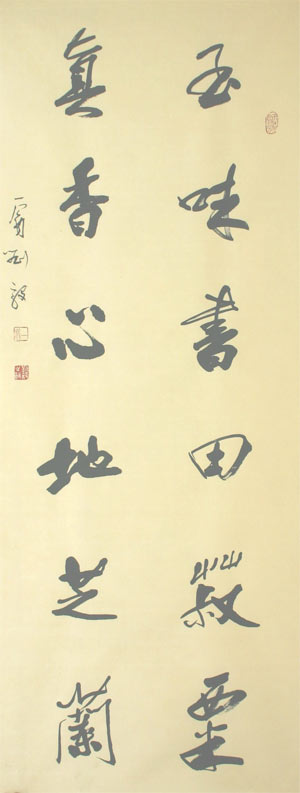 至味書田菽粟
真香心地芝蘭